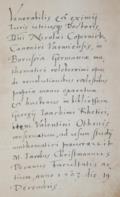 Venerabilis et eximii
Juris utriusque Doctoris,
Dni Nicolai Copernick
Canonici Varmiensis, in
Borussia Germaniae ma-
thematici celeberrimi opus
de revolutionibus coelestibus
propria manu exaratum
et hactenus in bibliotheca
Georgii Joachimi Rhetici
item Valentini Othonis
conservatum, ad usum studij
mathematici procuravit
M. Jacobus Christmannus
Decanus Facultatis ar-
tium, anno 1603. die 19
Decembris